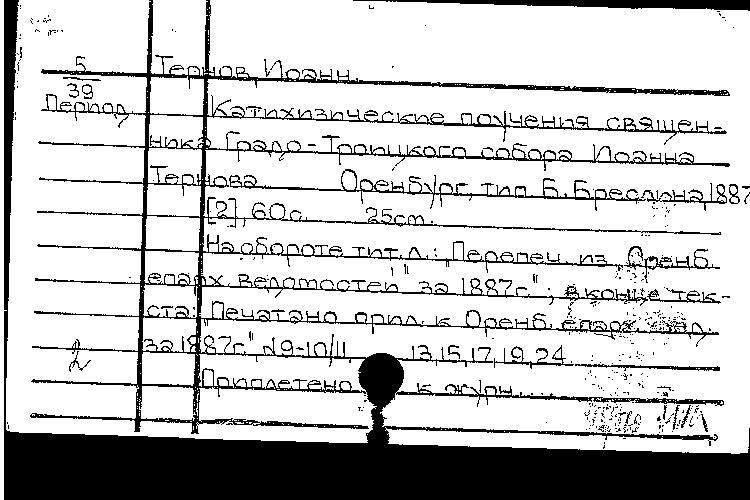 5
39
Период
Тернов, Иоанн.
Катихизические поучения священ-
ника Градо-Троицкого собора Иоанна
Тернова Оренбург, тип. Б. Бреслина, 1887
[2], 60с. 25см.
На обороте тит.л.: „Перепеч. из „Оренб.
епарх. ведомостей" за 1887г."; в конце тек-
ста: „Печатано прил. к Оренб. епарх. вед.
за 1887г.", №9-10, 11, 13, 15, 17, 19, 24.
Приплетено к журн....
2